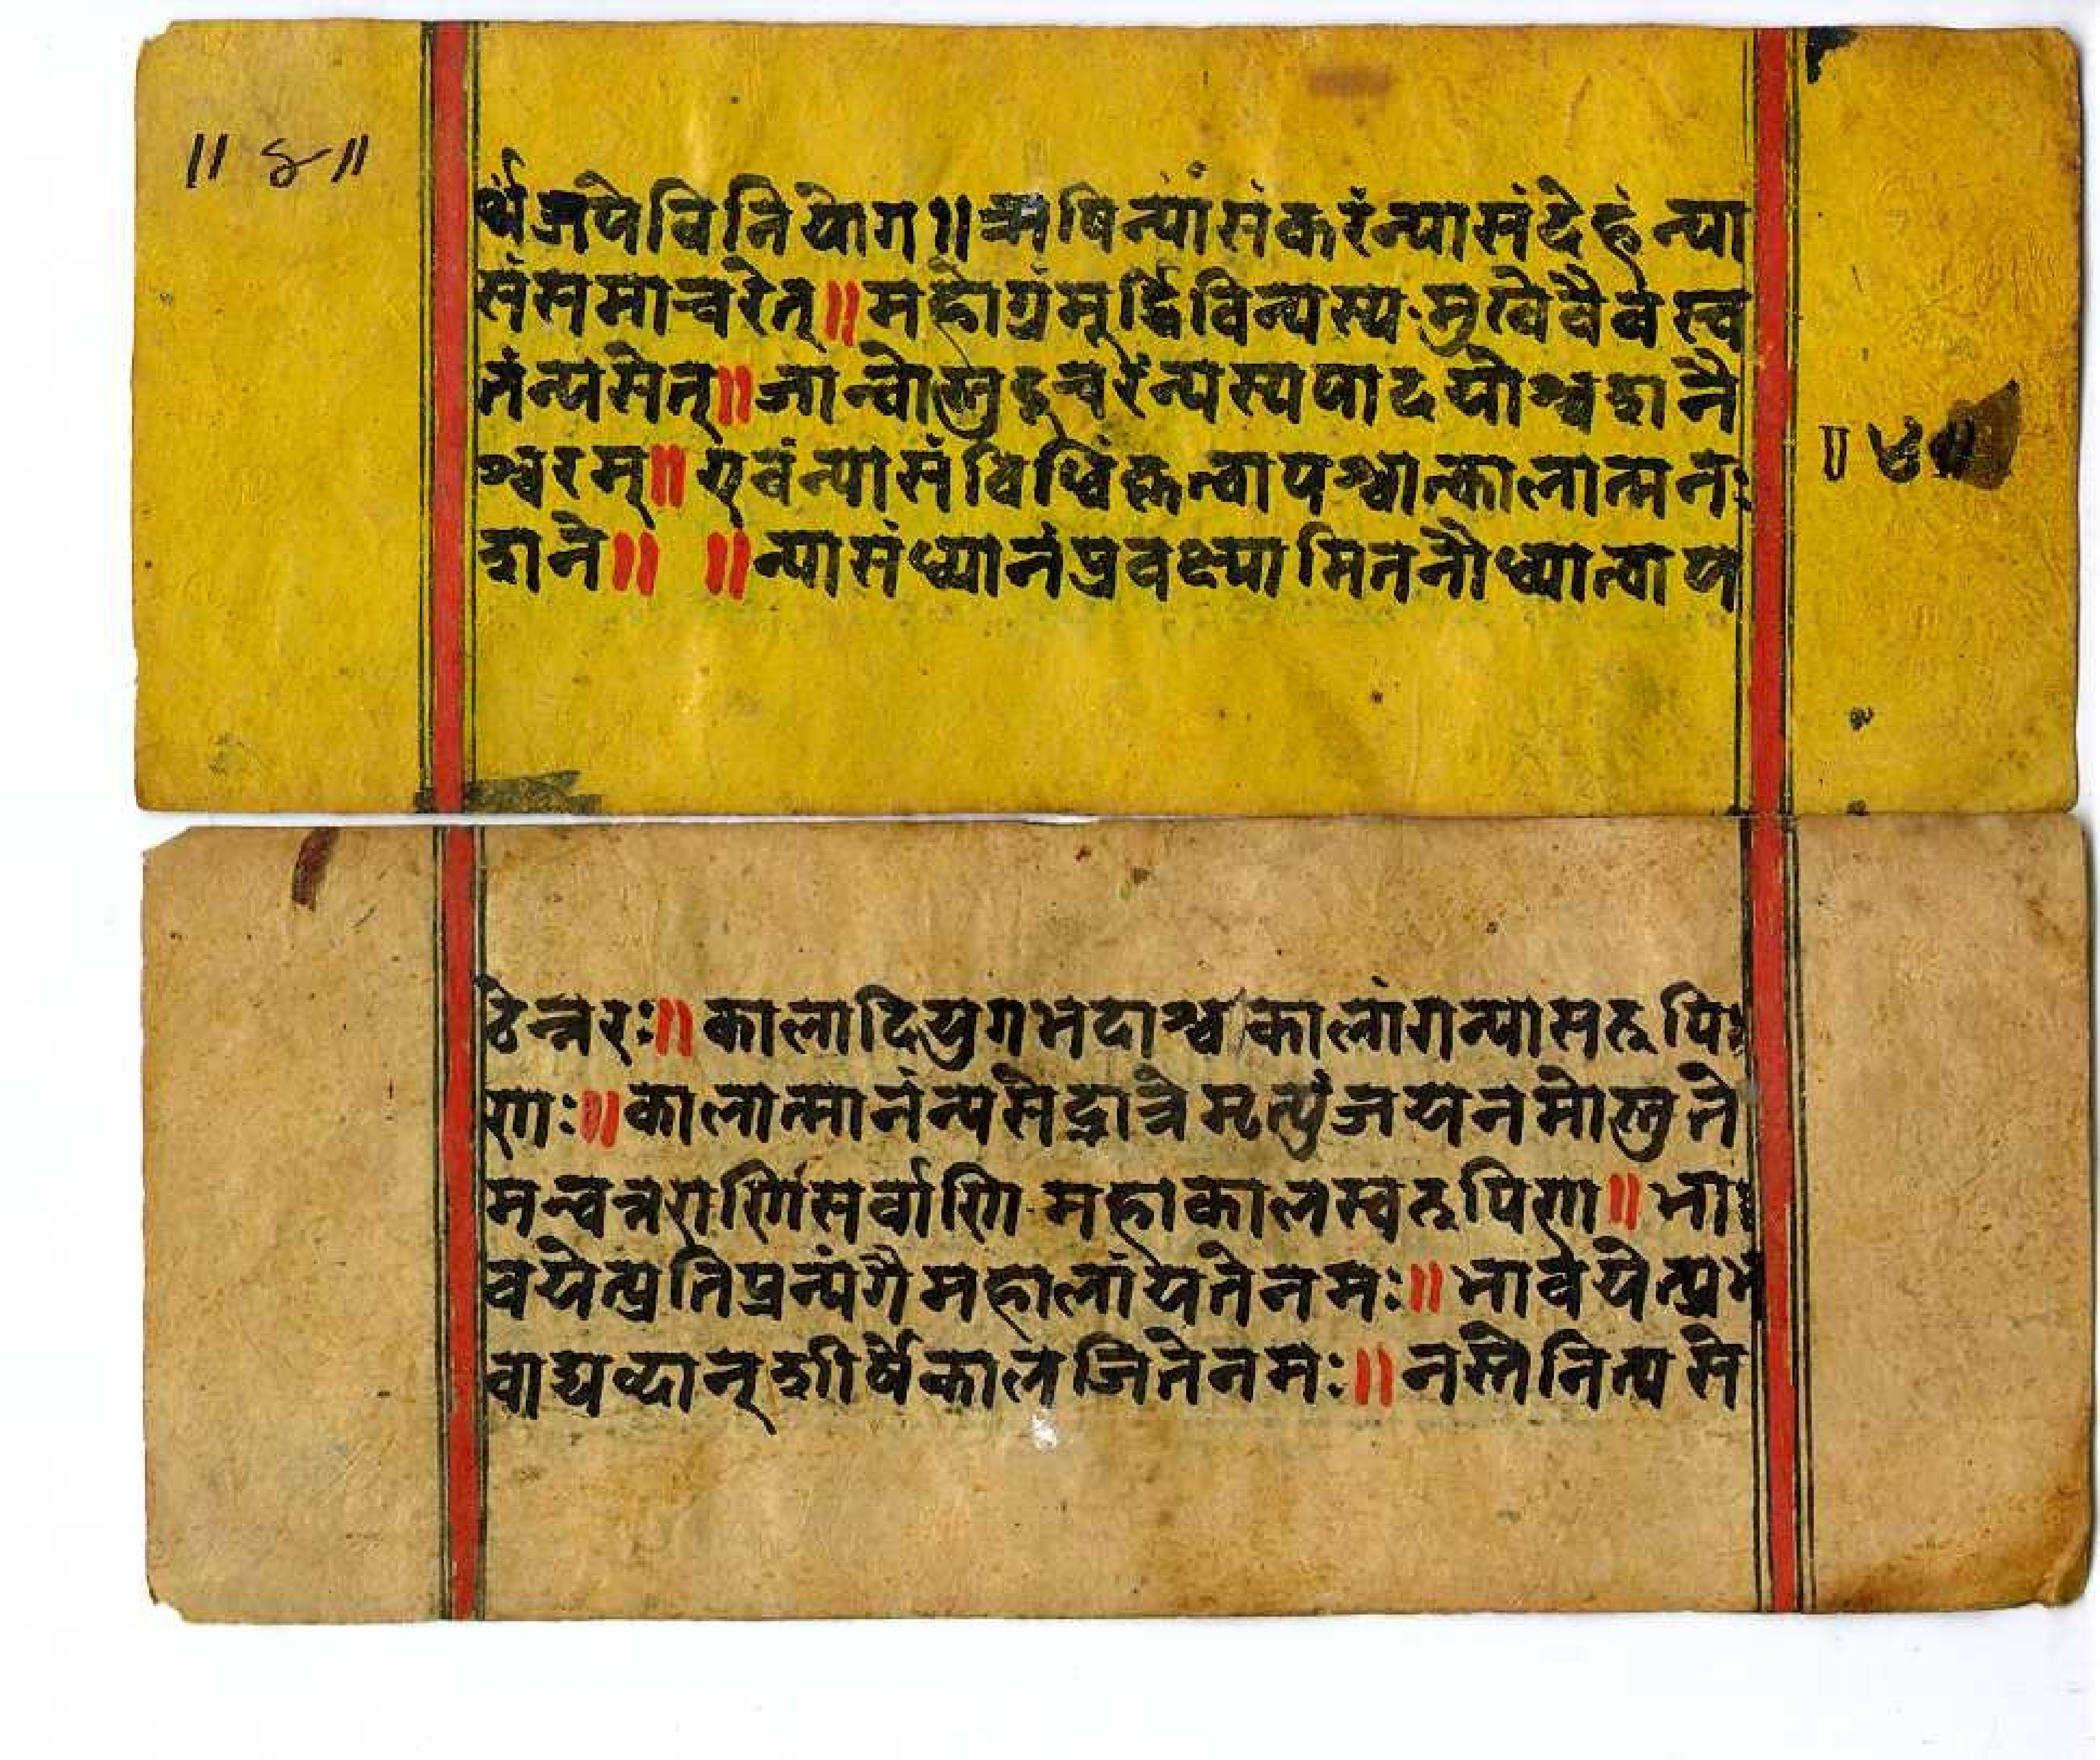 ॥ ४ ॥
र्थेजपेविनियोग॥ऋषिन्यासंकरंन्यासंदेहंन्या
संसमाचरेत्॥महोग्रंमूर्द्ध्निविन्यस्य मुखेवैवस्व
तंन्यसेत्॥जान्वोस्तुदुचरंन्यस्यपादयोश्चशनै
श्चरम्॥एवंन्यासंविधिंकृत्वापश्चात्कालात्मनः
शनै॥ ॥न्यासंध्यानंप्रवक्ष्यामिततनौध्यात्वाप
॥ ४॥
ठेन्नरः॥कालादियुगभदाश्चकालांगन्यासरूपि
णाः॥कालात्मानंन्यसेद्गात्रेमृत्युंजयनमोस्तुते
मन्वन्तराणिसर्वाणि महाकालस्वरूपिणा॥भा
वयेत्प्रतिप्रत्यंगैमहालांयतेनमः॥भावयेत्प्रभ
वाद्यब्दान्शीर्षेकालजितेनमः॥नस्तैनित्यसे